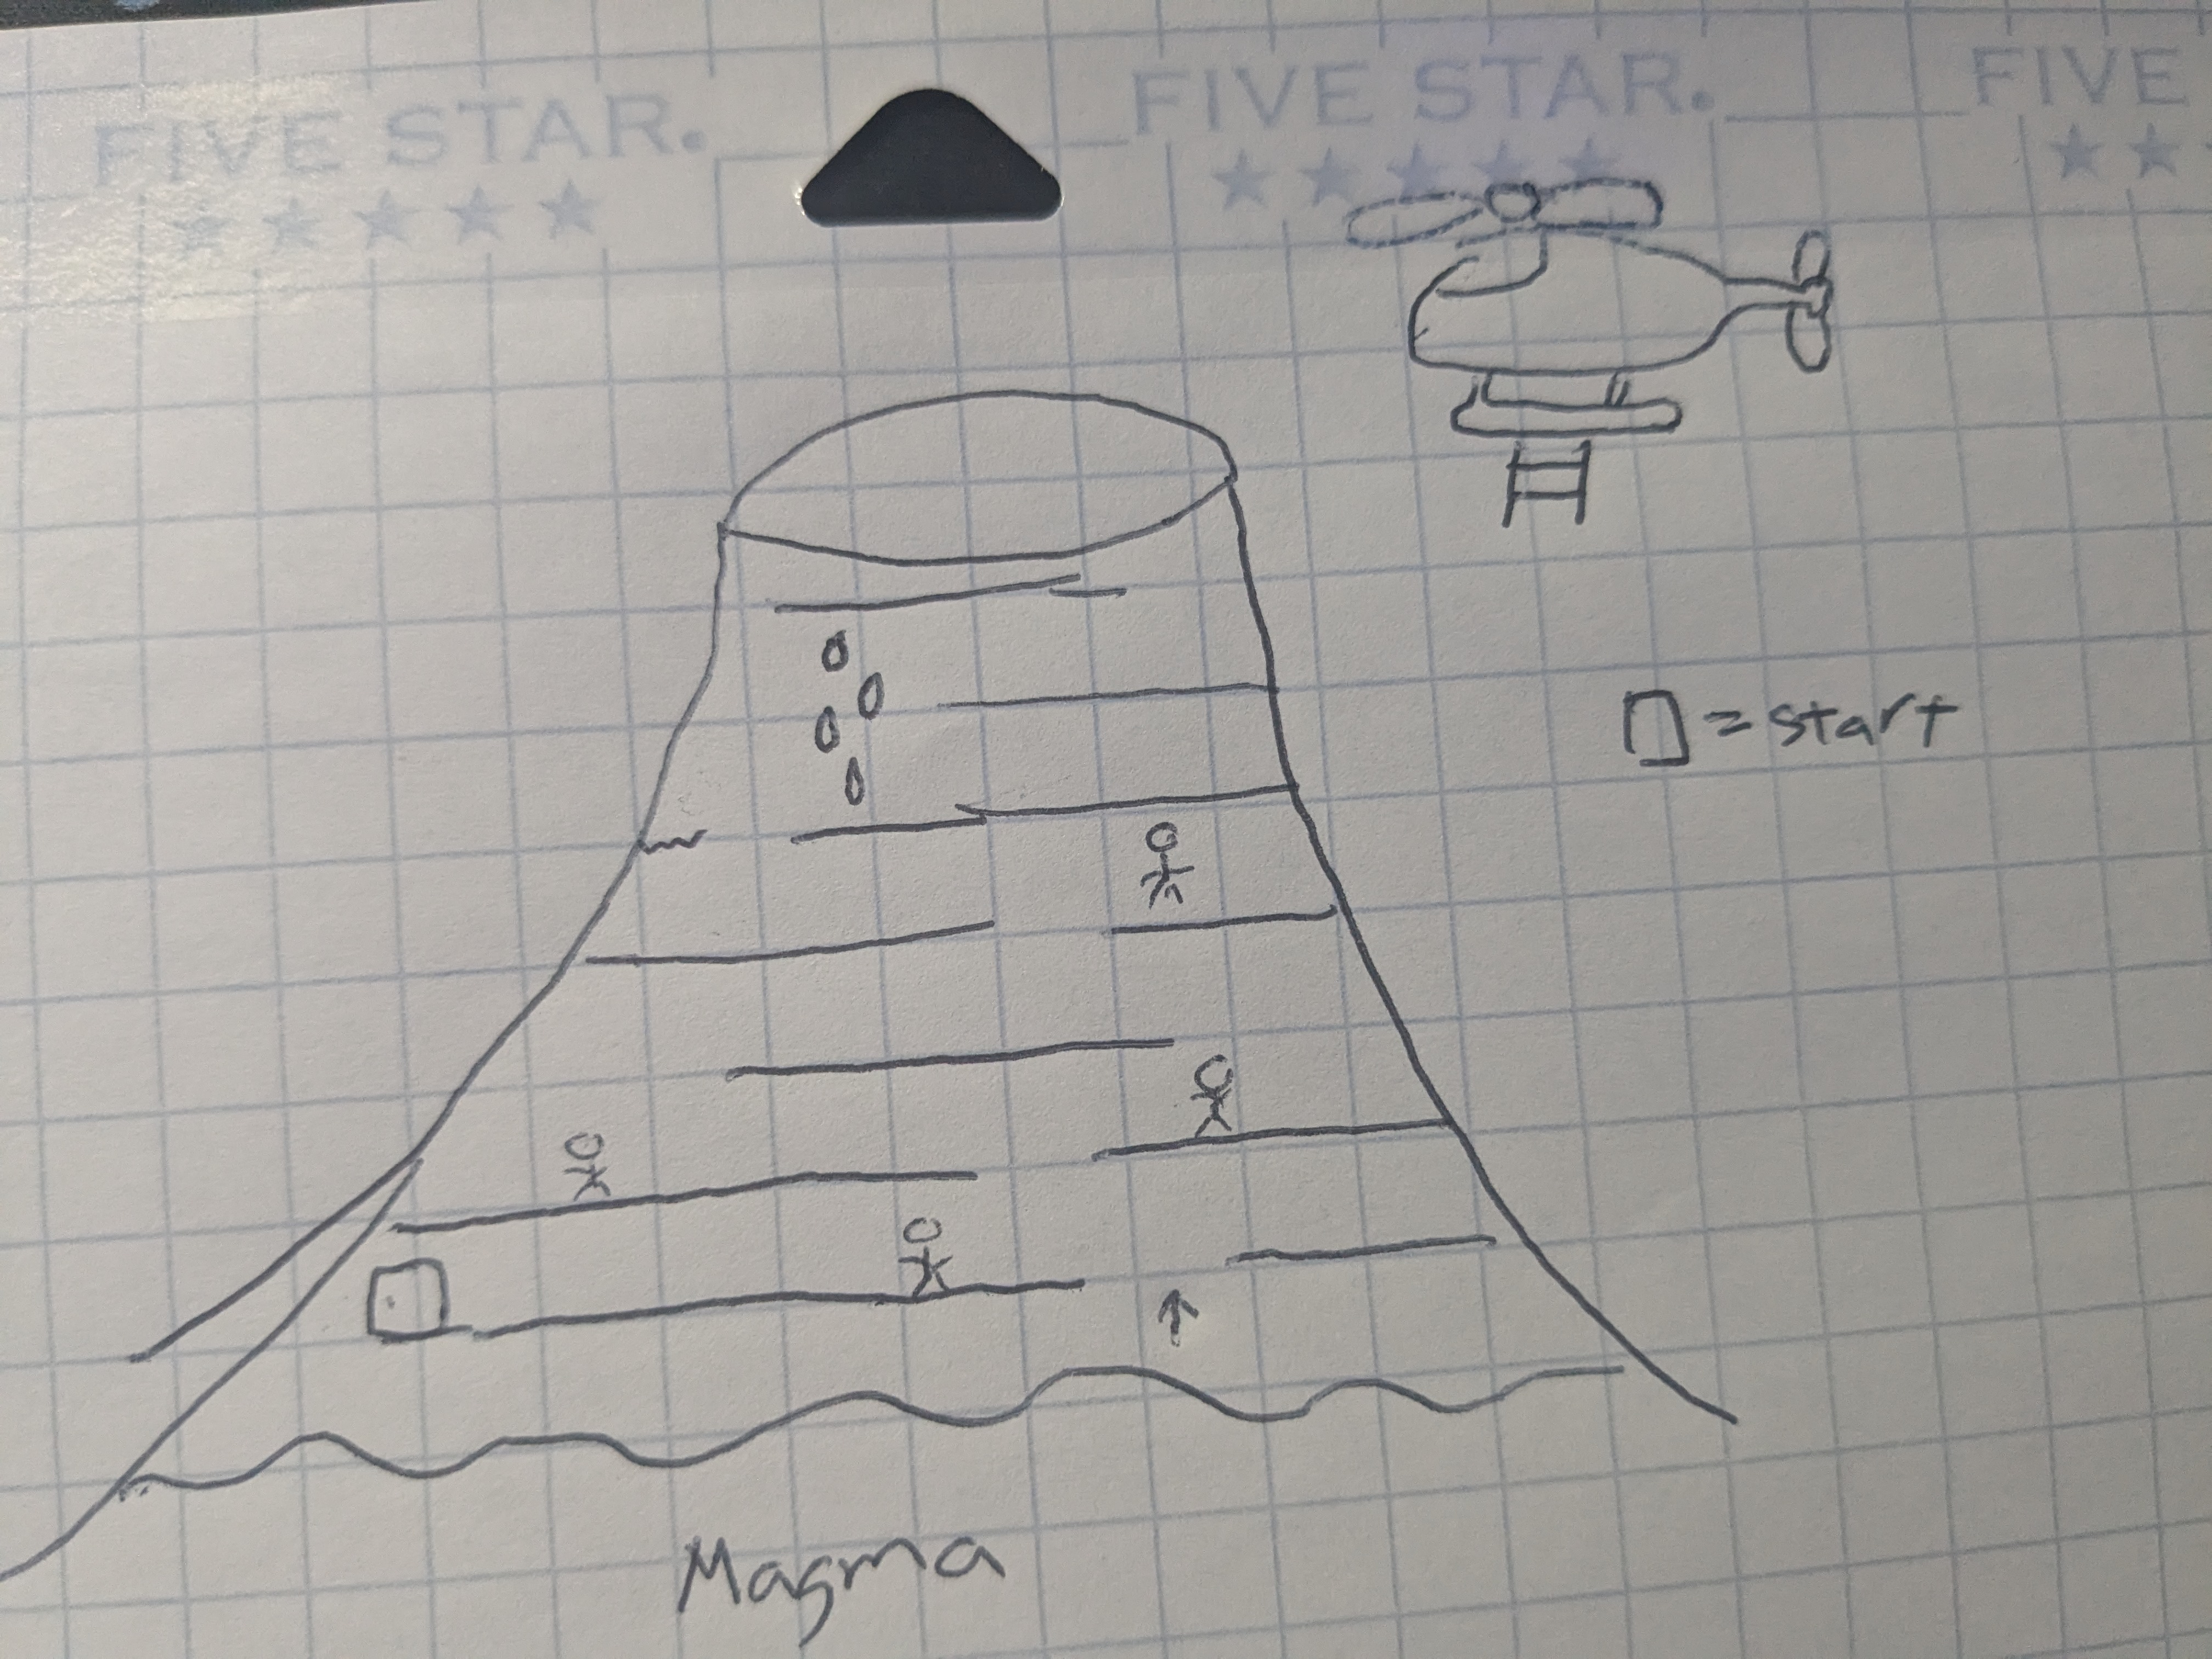 FIVE STAR.
★★★★★
FIVE STAR.
★★★★★
FIVE
★★
□=start
↑
Magma